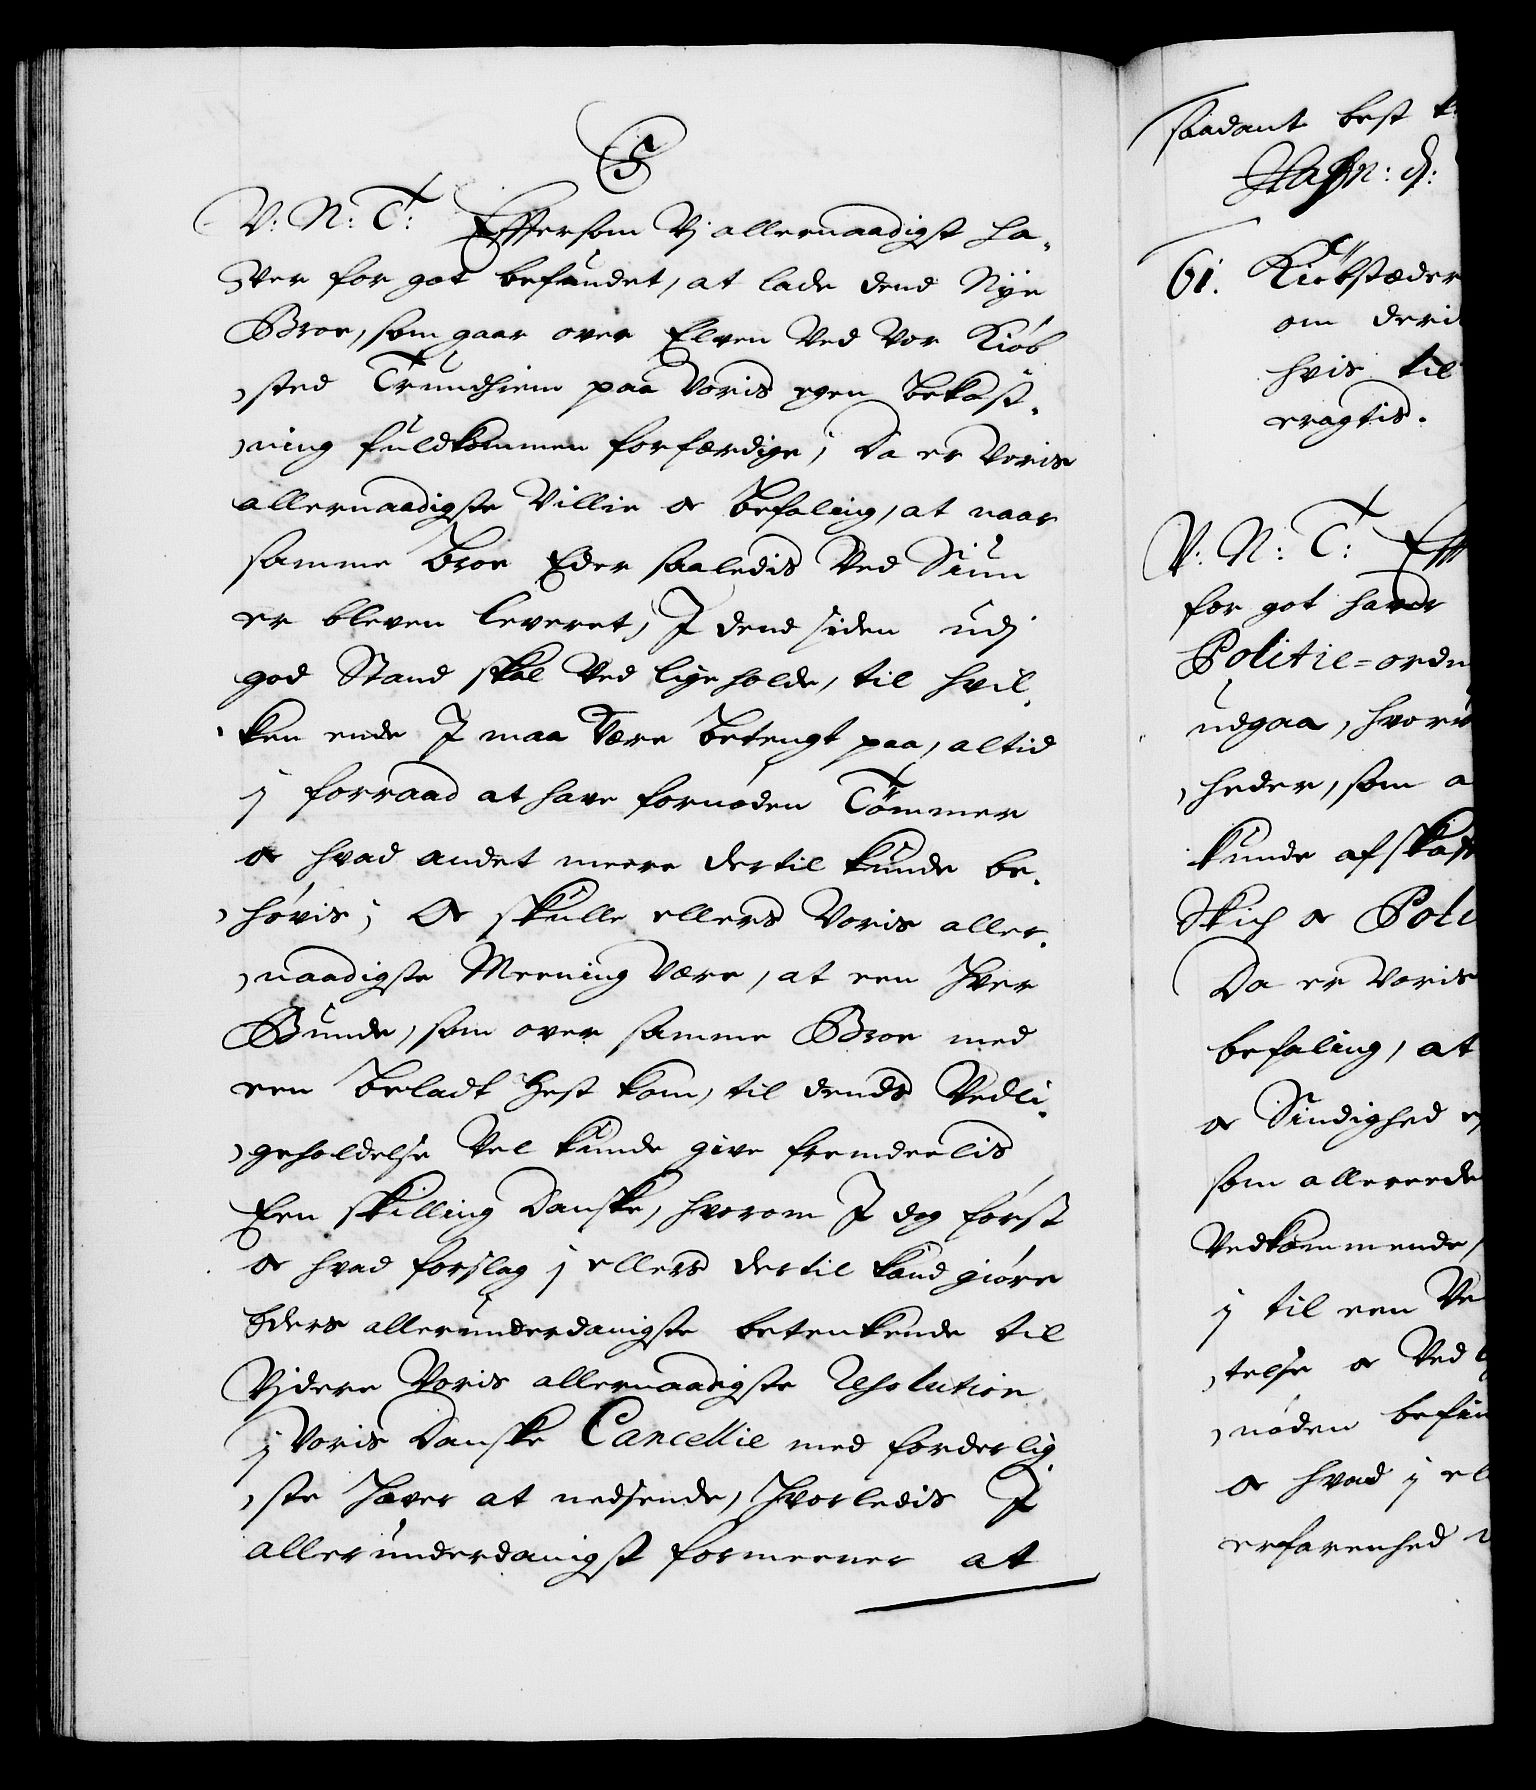 V: N: T: Efftersom Vj allernaadigst ha-
Ver for got befundet, at lade dend Nye
Broe, som gaar over Elven Ved Vor Kiøb
sted Trundhiem paa Voris egen bekost-
ning fuldkommen forfærdige, Da er Voris
allernaadigste Villie oc befaling, at naar
samme broe Eder saaledis Ved Siun
er bleven leveret, I dend siden udj
god Stand skal Ved lige holde, til hvil-
ken ende I maa Være betengt paa, altid
j forraad at have fornøden Tømmer
oc hvad andet meere dertil kunde be-
høvis; Oc skulle ellers Voris aller-
naadigste Meening Være, at een hver
Bunde, som over samme Broe med
een beladt hest kom, til dends Vedli-
geholdelse Vel kunde give fremdeelis
Een skilling Danske, hvorom I dog først
oc hvad forslag j ellers dertil kand giøre
Eders allerunderdanigste betenkende til
Vjdere Voris allernaadigste Resolution
j Voris Danske Cancellie med forderlig-
ste haver at nedsende, hvorledis I
allerunderdanigst formeener at
saadant best k
Hafn: d:
61. Kiøbstæder
om deri
hvis til
eragtis.
V: N: T: Eff
for got haver
Politie=ordn
udgaa, hvor
heder, som a
kunde afskaff
Skich oc Poli
Da er Voris
befaling, at
oc Sindighed
som allereede
Vedkommende,
j til een Ve
telse oc Ved
nøden befin
oc hvad j el
erfarenhed